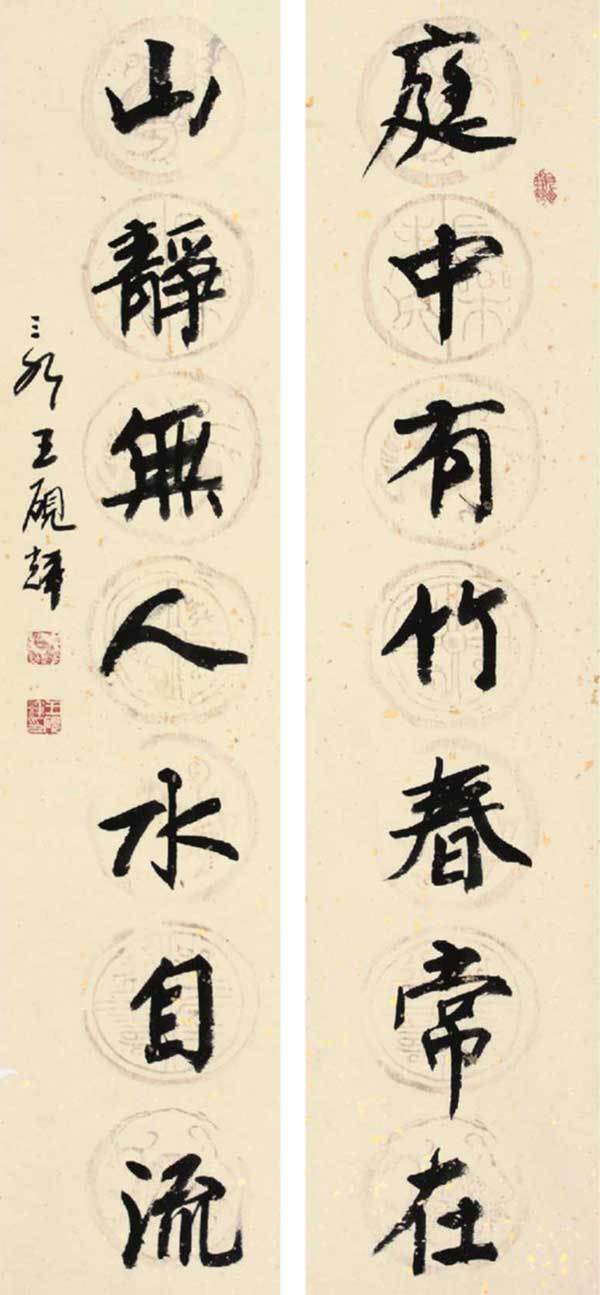 庭中有竹春常在
山靜無人水自流
王硯輝